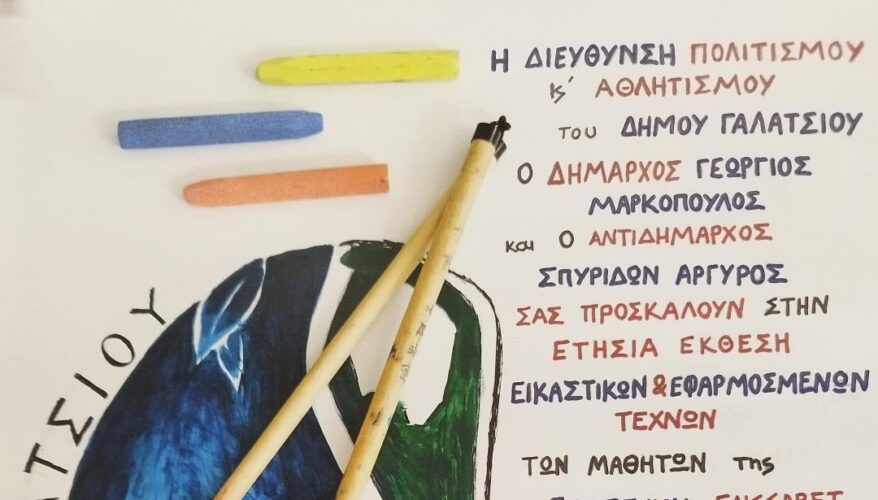 Η ΔΙΕΥΘΥΝΣΗ ΠΟΛΙΤΙΣΜΟΥ
Κ' ΑΘΛΗΤΙΣΜΟΥ
του ΔΗΜΟΥ ΓΑΛΑΤΣΙΟΥ
Ο ΔΗΜΑΡΧΟΣ ΓΕΩΡΓΙΟΣ
ΜΑΡΚΟΠΟΥΛΟΣ
και Ο ΑΝΤΙΔΗΜΑΡΧΟΣ
ΣΠΥΡΙΔΩΝ ΑΡΓΥΡΟΣ
ΣΑΣ ΠΡΟΣΚΑΛΟΥΝ ΣΤΗΝ
ΕΤΗΣΙΑ ΕΚΘΕΣΗ
ΕΙΚΑΣΤΙΚΩΝ & ΕΦΑΡΜΟΣΜΕΝΩΝ
ΤΕΧΝΩΝ
ΤΩΝ ΜΑΘΗΤΩΝ της
ΑΤΣΙΟΥ